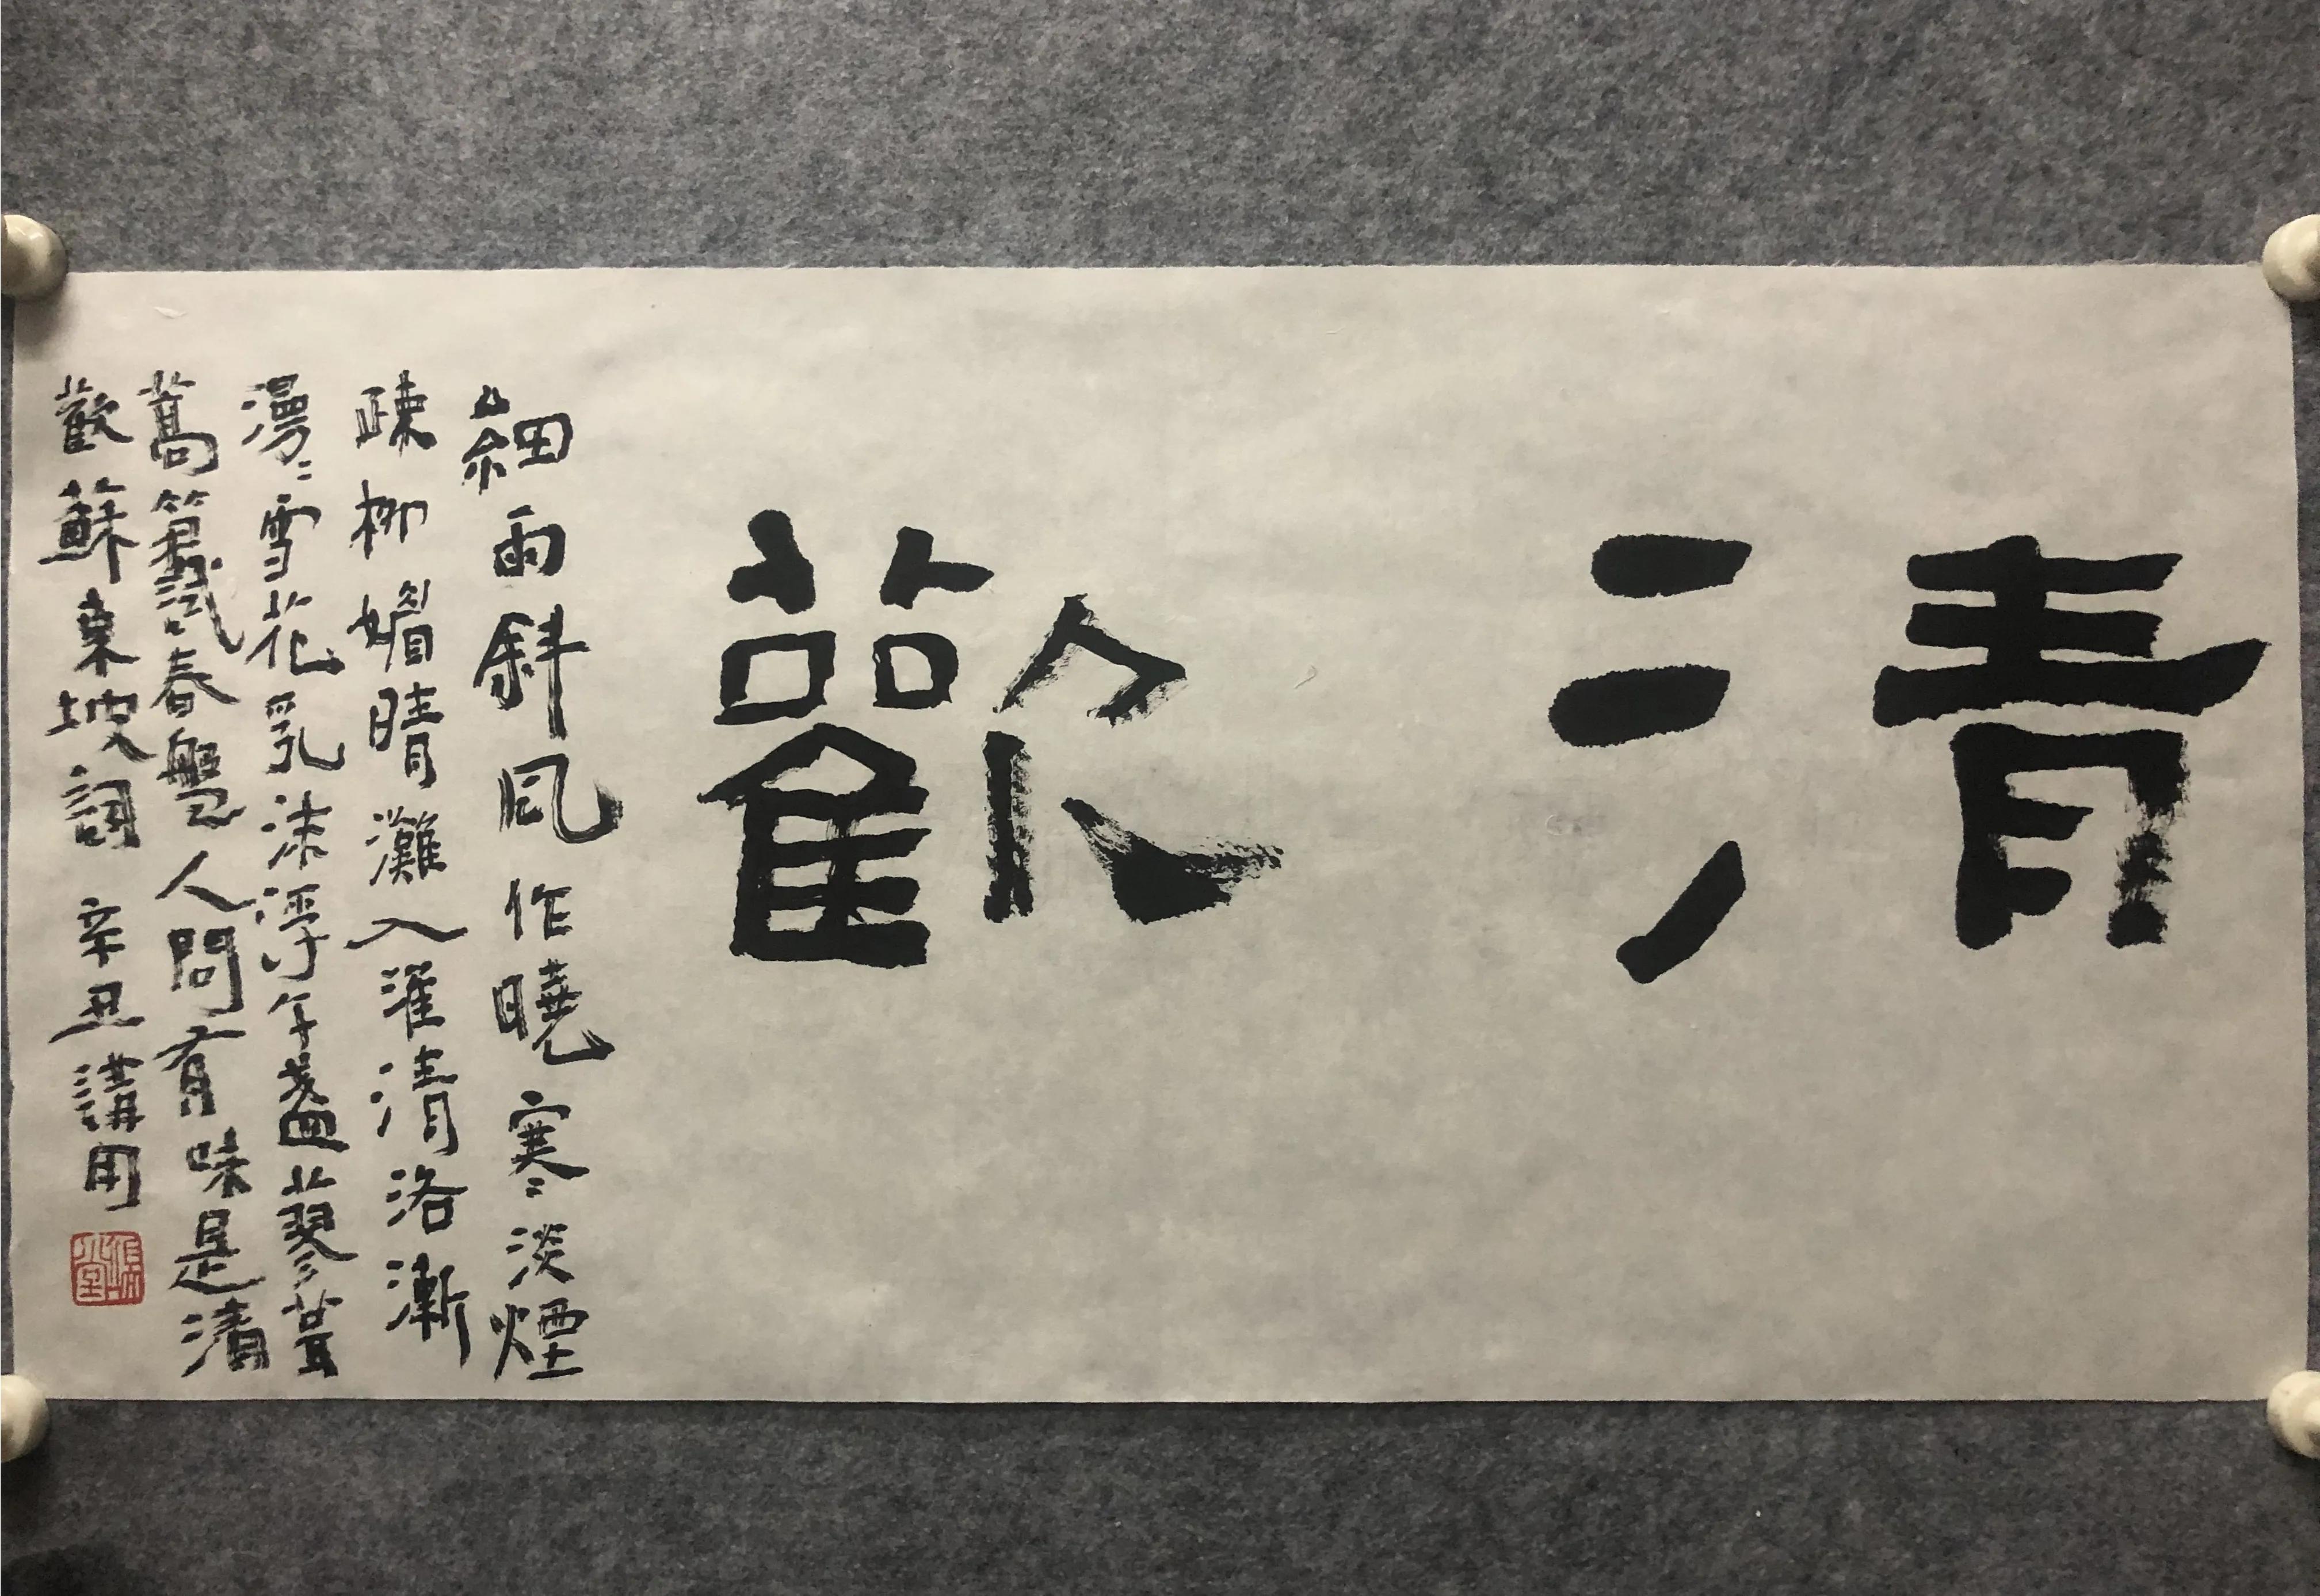 清歡
細雨斜風作曉寒淡煙
疎柳媚晴灘入淮清洛漸
漫々雪花乳沫浮午盞蓼茸
蒿筍試春盤人間有味是清
歡蘇東坡詞 辛丑講用